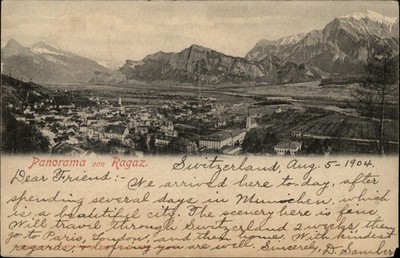 Panorama von Ragaz.
Switzerland, Aug. 5 - 1904.
Dear Friend:- We arrived here to-day, after
spending several days in Munchen, which
is a beautiful city. The scenery here is fine.
Will travel through Switzerland 2 weeks, then
go to Paris, London, and then home. With kindest
regards, & hoping you are well. Sincerely, D.